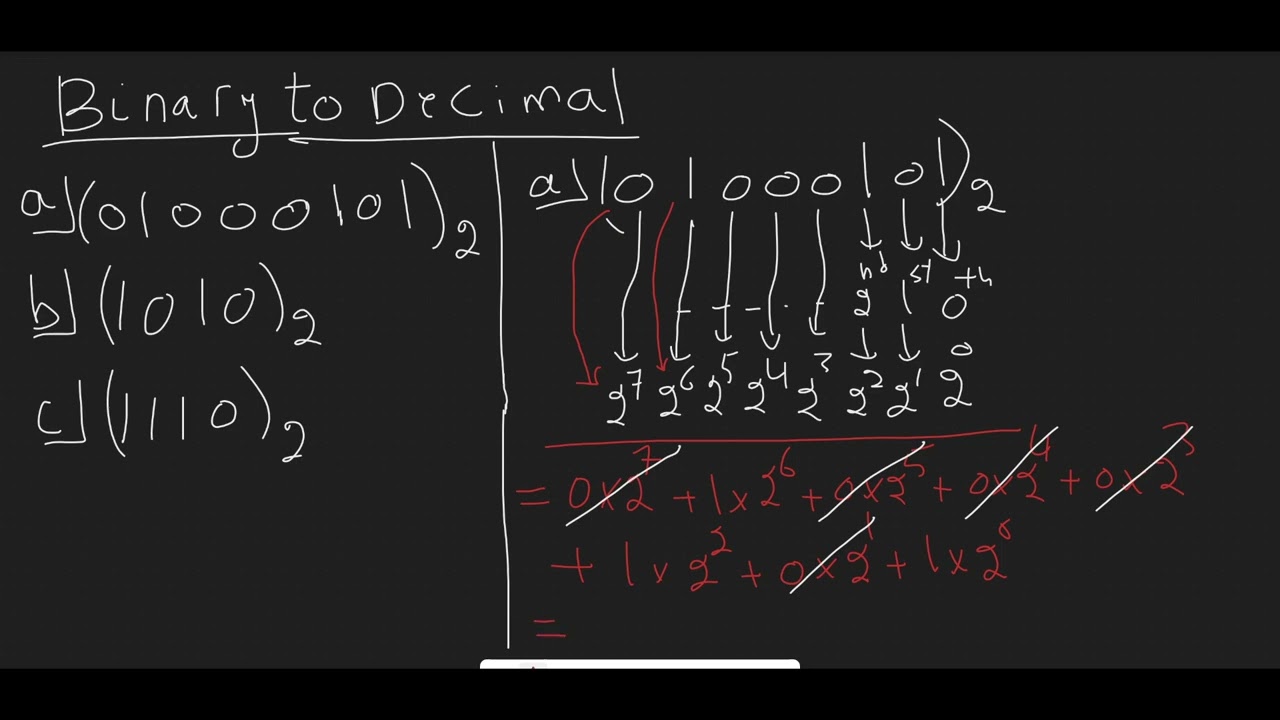 Binary to Decimal
a](01000101)₂
b](1010)₂
c](1110)₂
a](01000101)₂
nd st th
2 1 0
2⁷ 2⁶ 2⁵ 2⁴ 2³ 2² 2¹ 2⁰
= 0×2⁷ + 1×2⁶ + 0×2⁵ + 0×2⁴ + 0×2³
+ 1×2² + 0×2¹ + 1×2⁰
=